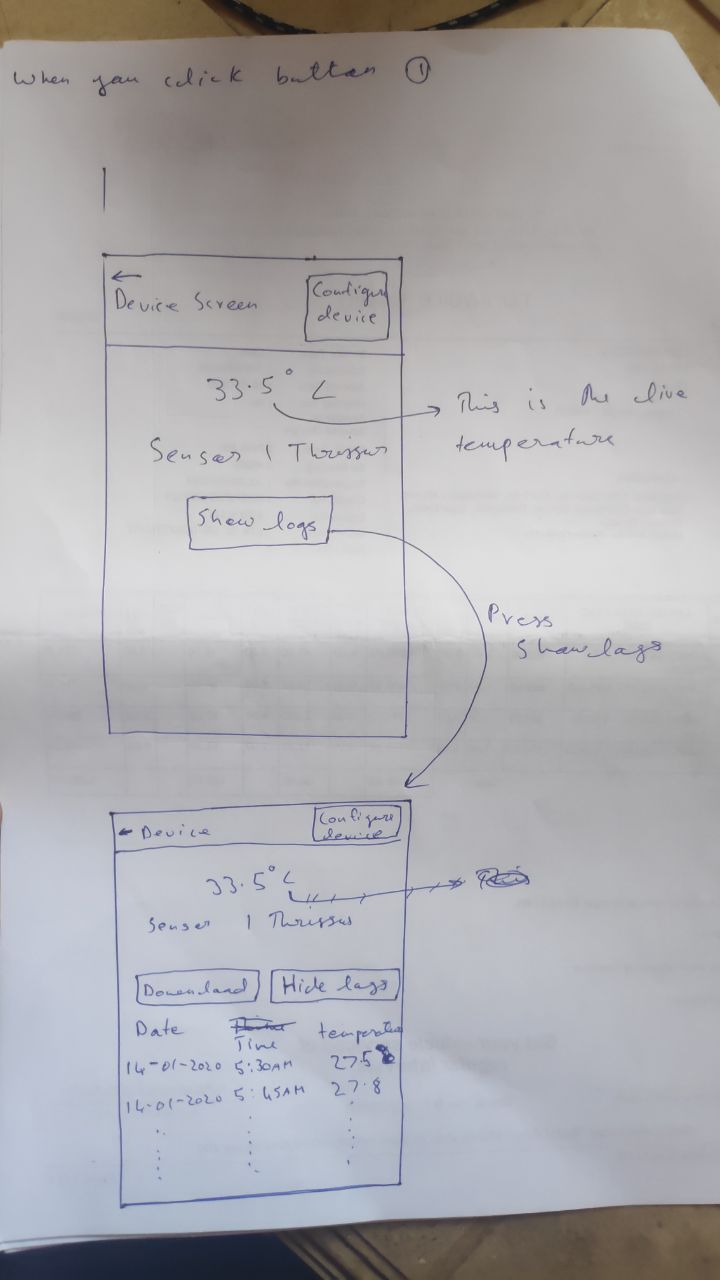 When you click button ①
←
Device Screen
Configure
device
33.5° C
This is the live
temperature
Sensor 1 Thrissur
Show logs
Press
Show logs
← Device
Configure
device
33.5° C
Sensor 1 Thrissur
Download
Hide logs
Date Time temperature
14-01-2020 5:30AM 27.5
14-01-2020 5:45AM 27.8